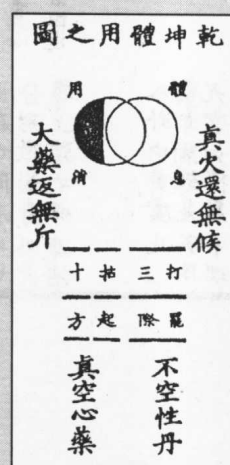 乾坤體用之圖
體
用
息
消
真火還無候
大藥返無斤
打三
罷際
拈十
起方
不空性丹
真空心藥